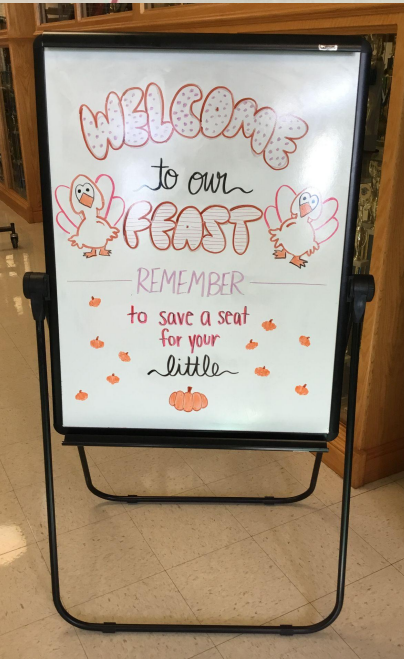 WELCOME
to our
FEAST
REMEMBER
to save a seat
for your
little